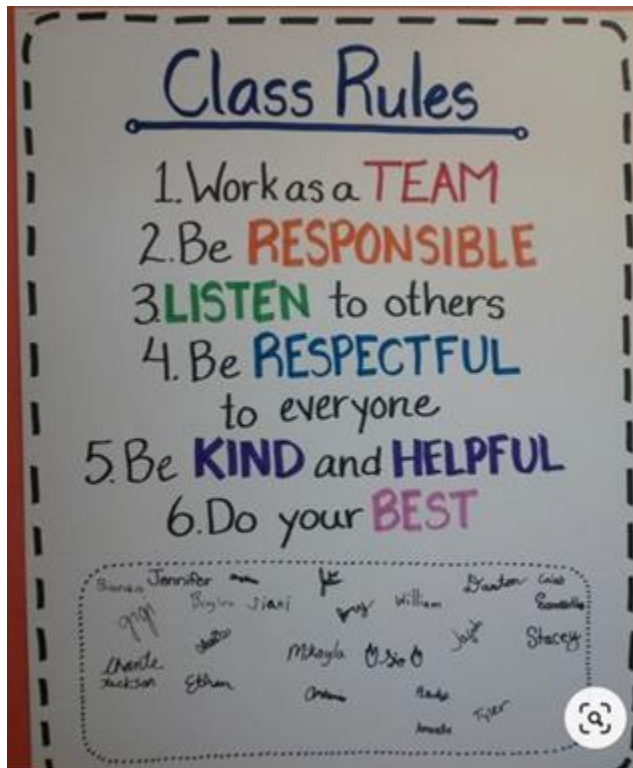 Class Rules
1. Work as a TEAM
2. Be RESPONSIBLE
3. LISTEN to others
4. Be RESPECTFUL
to everyone
5. Be KIND and HELPFUL
6. Do your BEST
Bianka Jennifer Daxton Caleb
gigi Jiani William Samantha
Mikayla Stacey
Chante
Jackson Ethan
Tyler
Amanda